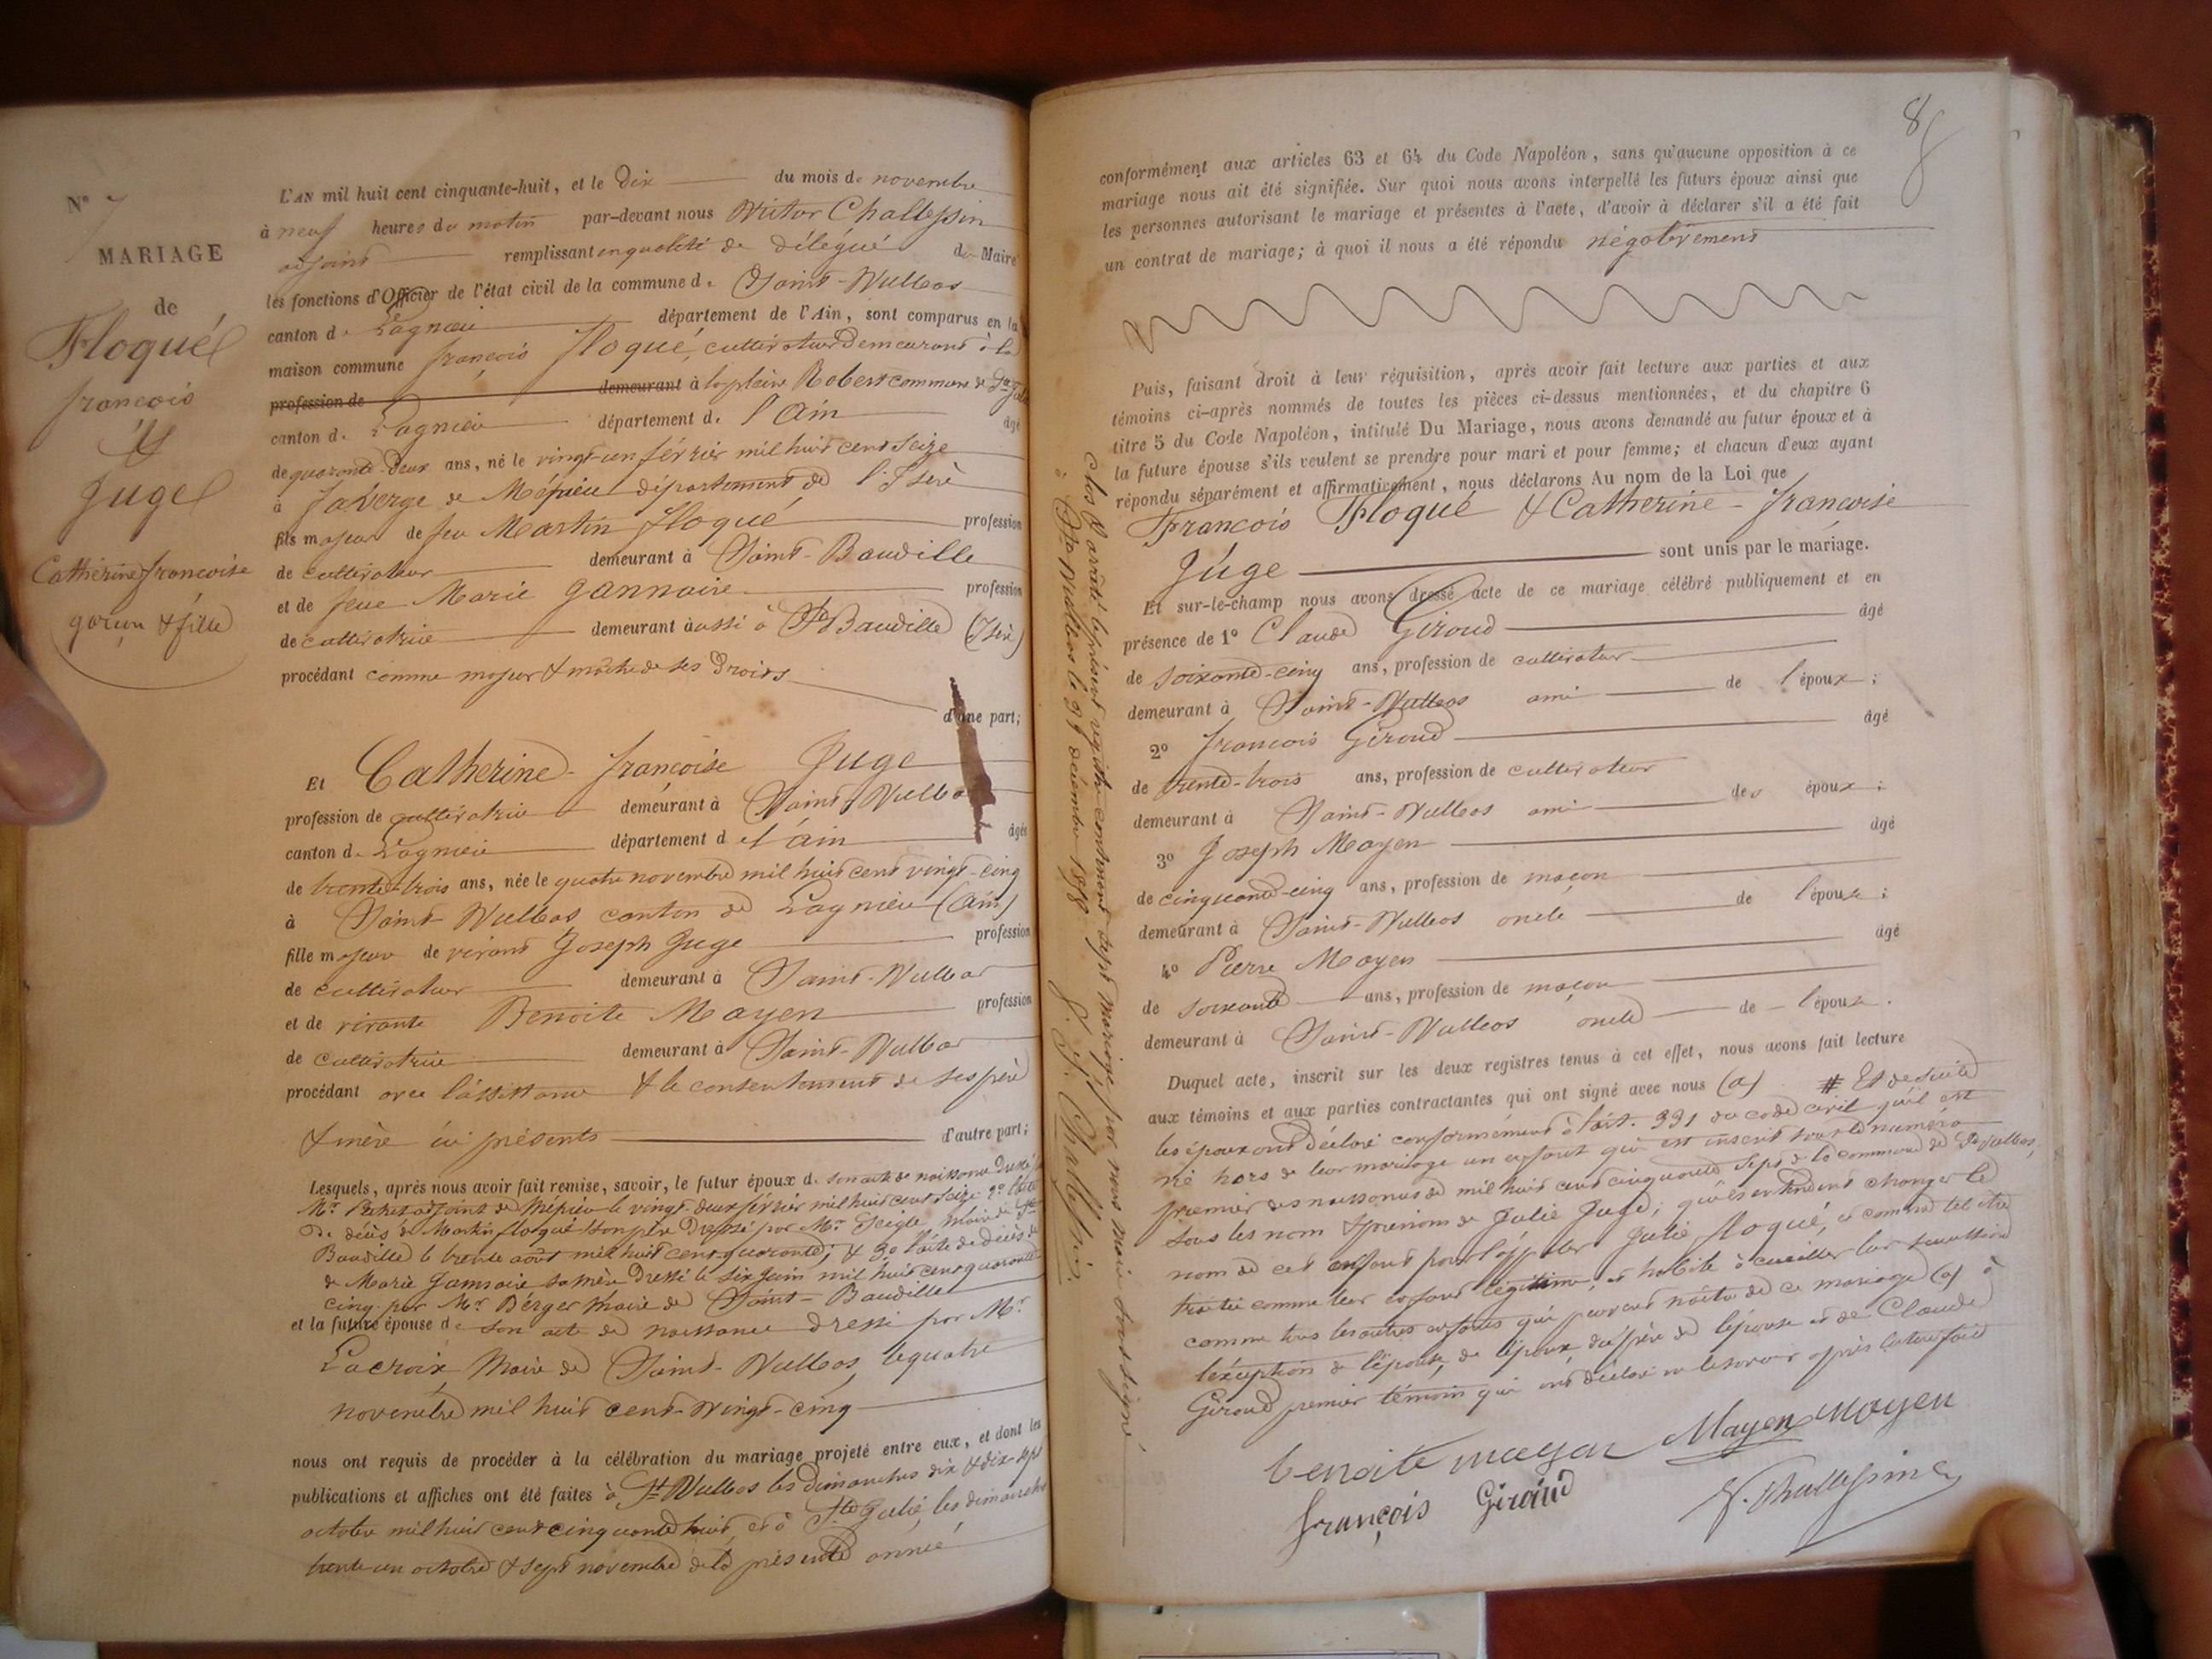 N° 7
MARIAGE
de
Floqué
françois
&
Juge
Catherine françoise
garçon & fille
L'AN mil huit cent cinquante-huit, et le Dix du mois de novembre
à neuf heures du matin par-devant nous Victor Challessin
adjoint remplissant en qualité de délégué du Maire
les fonctions d'Officier de l'état civil de la commune de Saint-Vulbas
canton de Lagnieu département de l'Ain, sont comparus en la
maison commune françois floqué, cultivateur demeurant à la
profession de demeurant à la plaine Robert commune de Ste Julie
canton de Lagnieu département de l'Ain âgé
de quarante-deux ans, né le vingt-un février mil huit cent seize
à faverge de Mépieu département de l'Isère
fils majeur de feu Martin floqué profession
de cultivateur demeurant à Saint-Baudille
et de feue Marie gannaire profession
de cultivatrice demeurant aussi à St Baudille (Isère)
procédant comme majeur & maître de ses Droits
d'une part;
Et Catherine-françoise Juge
profession de cultivatrice demeurant à Saint-Vulbas
canton de Lagnieu département de l'ain âgée
de trente-trois ans, née le quatre novembre mil huit cent vingt-cinq
à Saint-Vulbas canton de Lagnieu (Ain)
fille majeur de vivant Joseph Juge profession
de cultivateur demeurant à Saint-Vulbas
et de vivante Benoite Mayen profession
de cultivatrice demeurant à Saint-Vulbas
procédant avec l'assistance & le consentement de ses père
& mère ici présents d'autre part;
Lesquels, après nous avoir fait remise, savoir, le futur époux de son acte de naissance Dressé
Mr adjoint de Mépieu le vingt-deux février mil huit cent seize 2° l'acte
de décès de Martin floqué son père Dressé par Mr Teigle maire de St
Baudille le trente août mil huit cent quarante; & 3° l'acte de décès de
de Marie Jannaire sa mère Dressé le six juin mil huit cent quarante
cinq par Mr Berger Maire de Saint-Baudille
et la future épouse de son acte de naissance dressé par Mr
Lacroix, Maire de Saint-Vulbas, le quatre
novembre mil huit cent-vingt-cinq
nous ont requis de procéder à la célébration du mariage projeté entre eux, et dont les
publications et affiches ont été faites à St Vulbas les dimanches dix & dix-sept
octobre mil huit cent cinquante huit, et à Ste Julie, les dimanches
trente-un octobre & sept novembre de la présente année
8
conformément aux articles 63 et 64 du Code Napoléon, sans qu'aucune opposition à ce
mariage nous ait été signifiée. Sur quoi nous avons interpellé les futurs époux ainsi que
les personnes autorisant le mariage et présentes à l'acte, d'avoir à déclarer s'il a été fait
un contrat de mariage; à quoi il nous a été répondu négativement
Puis, faisant droit à leur réquisition, après avoir fait lecture aux parties et aux
témoins ci-après nommés de toutes les pièces ci-dessus mentionnées, et du chapitre 6
titre 5 du Code Napoléon, intitulé Du Mariage, nous avons demandé au futur époux et à
la future épouse s'ils veulent se prendre pour mari et pour femme; et chacun d'eux ayant
répondu séparément et affirmativement, nous déclarons Au nom de la Loi que
François Floqué & Catherine-françoise
Juge sont unis par le mariage.
Et sur-le-champ nous avons dressé acte de ce mariage célébré publiquement et en
présence de 1° Claude Giroud âgé
de soixante-cinq ans, profession de cultivateur
demeurant à Saint-Vulbas ami de l'époux;
2° françois Giroud âgé
de trente-trois ans, profession de cultivateur
demeurant à Saint-Vulbas ami des époux;
3° Joseph Mayen âgé
de cinquante-cinq ans, profession de maçon
demeurant à Saint-Vulbas oncle de l'épouse;
4° Pierre Mayen âgé
de soixante ans, profession de maçon
demeurant à Saint-Vulbas oncle de l'épouse.
Duquel acte, inscrit sur les deux registres tenus à cet effet, nous avons fait lecture
aux témoins et aux parties contractantes qui ont signé avec nous (a) # Et de suite
les époux ont déclaré conformément à l'art. 331 du code civil qu'il est
né hors de leur mariage un enfant qui est inscrit sous le numéro
premier des naissances de mil huit cent cinquante sept de la commune de St Vulbas,
sous les nom & prénoms de Julie Juge; qu'ils entendent changer le
nom de cet enfant pour l'appeler Julie floqué, et comme tel être
traitée comme leur enfant légitime, et habile à cueillir leur succession
comme tous les autres enfants qui peuvent naître de ce mariage (a) à
l'exception de l'épouse, de l'époux du père de l'épouse et de Claude
Giroud premier témoin qui ont déclaré ne le savoir après lecture faite
benoite mayen Mayen mayen
françois Giroud V. Challessin
Clos & arrêté le présent registre contenant sept mariages, par nous maire soussigné
à St Vulbas le 31 décembre 1858